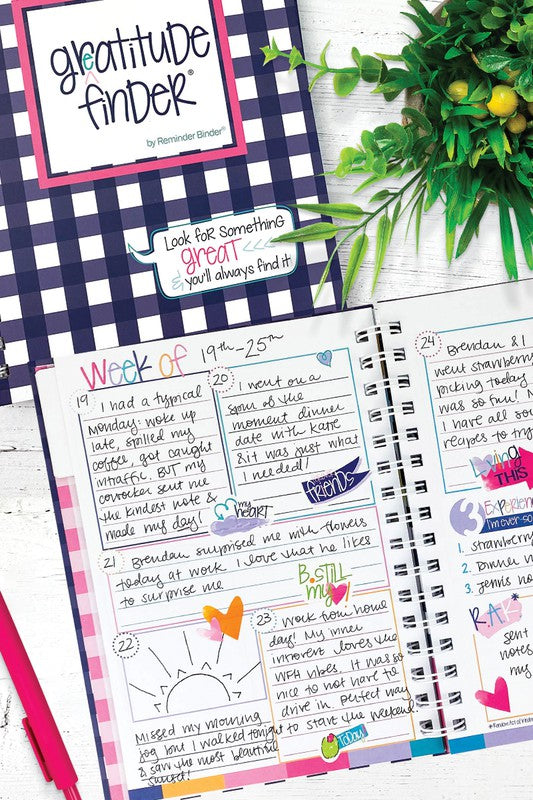 greatitude
finder®
by Reminder Binder®
Look for Something
great
& you'll always find it
Week of 19th-25th
19
I had a typical
Monday: woke up
late, spilled my
coffee, got caught
in traffic. BUT my
coworker sent me
the kindest note &
made my day!
my
heart
20
I went on a
spur of the
moment dinner
date with Katie
& it was just what
I needed!
friends
21
Brendan surprised me with flowers
today at work. I love that he likes
to surprise me
B.Still
my
22
Missed my morning
jog, but I walked tonight
& saw the most beautiful
sunset!
23
Work from home
day! My inner
introvert loves the
WFH vibes. It was so
nice to not have to
drive in. Perfect way
to start the weekend!
Today
24
Brendan & I
went strawberry
picking today
was so fun!
I have all so
recipes to try
loving
THIS
3 Experienc
I'm ever-so
1. Strawberry
2.
3. Jenni's
RAK*
sent
notes
my